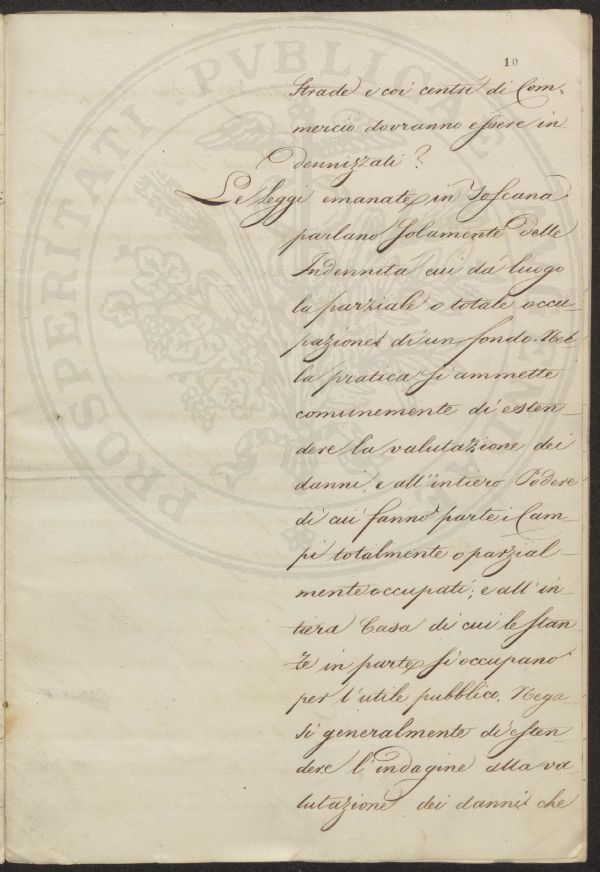 10
Strade e coi centri di Com-
mercio dovranno essere in
dennizzati?
Le Leggi emanate in Toscana
parlano solamente delle
Indennità cui dà luogo
la parziale o totale occu-
pazione di un fondo. Nel
la pratica si ammette
comunemente di esten-
dere la valutazione dei
danni e all'intiero Podere
di cui fanno parte i Cam-
pi totalmente o parzial-
mente occupati; e all'in-
tiera Casa di cui le stan-
ze in parte si occupano
per l'utile pubblico. Nega
si generalmente di esten
dere l'indagine alla va
lutazione dei danni che
PROSPERITATI PVBLICAE